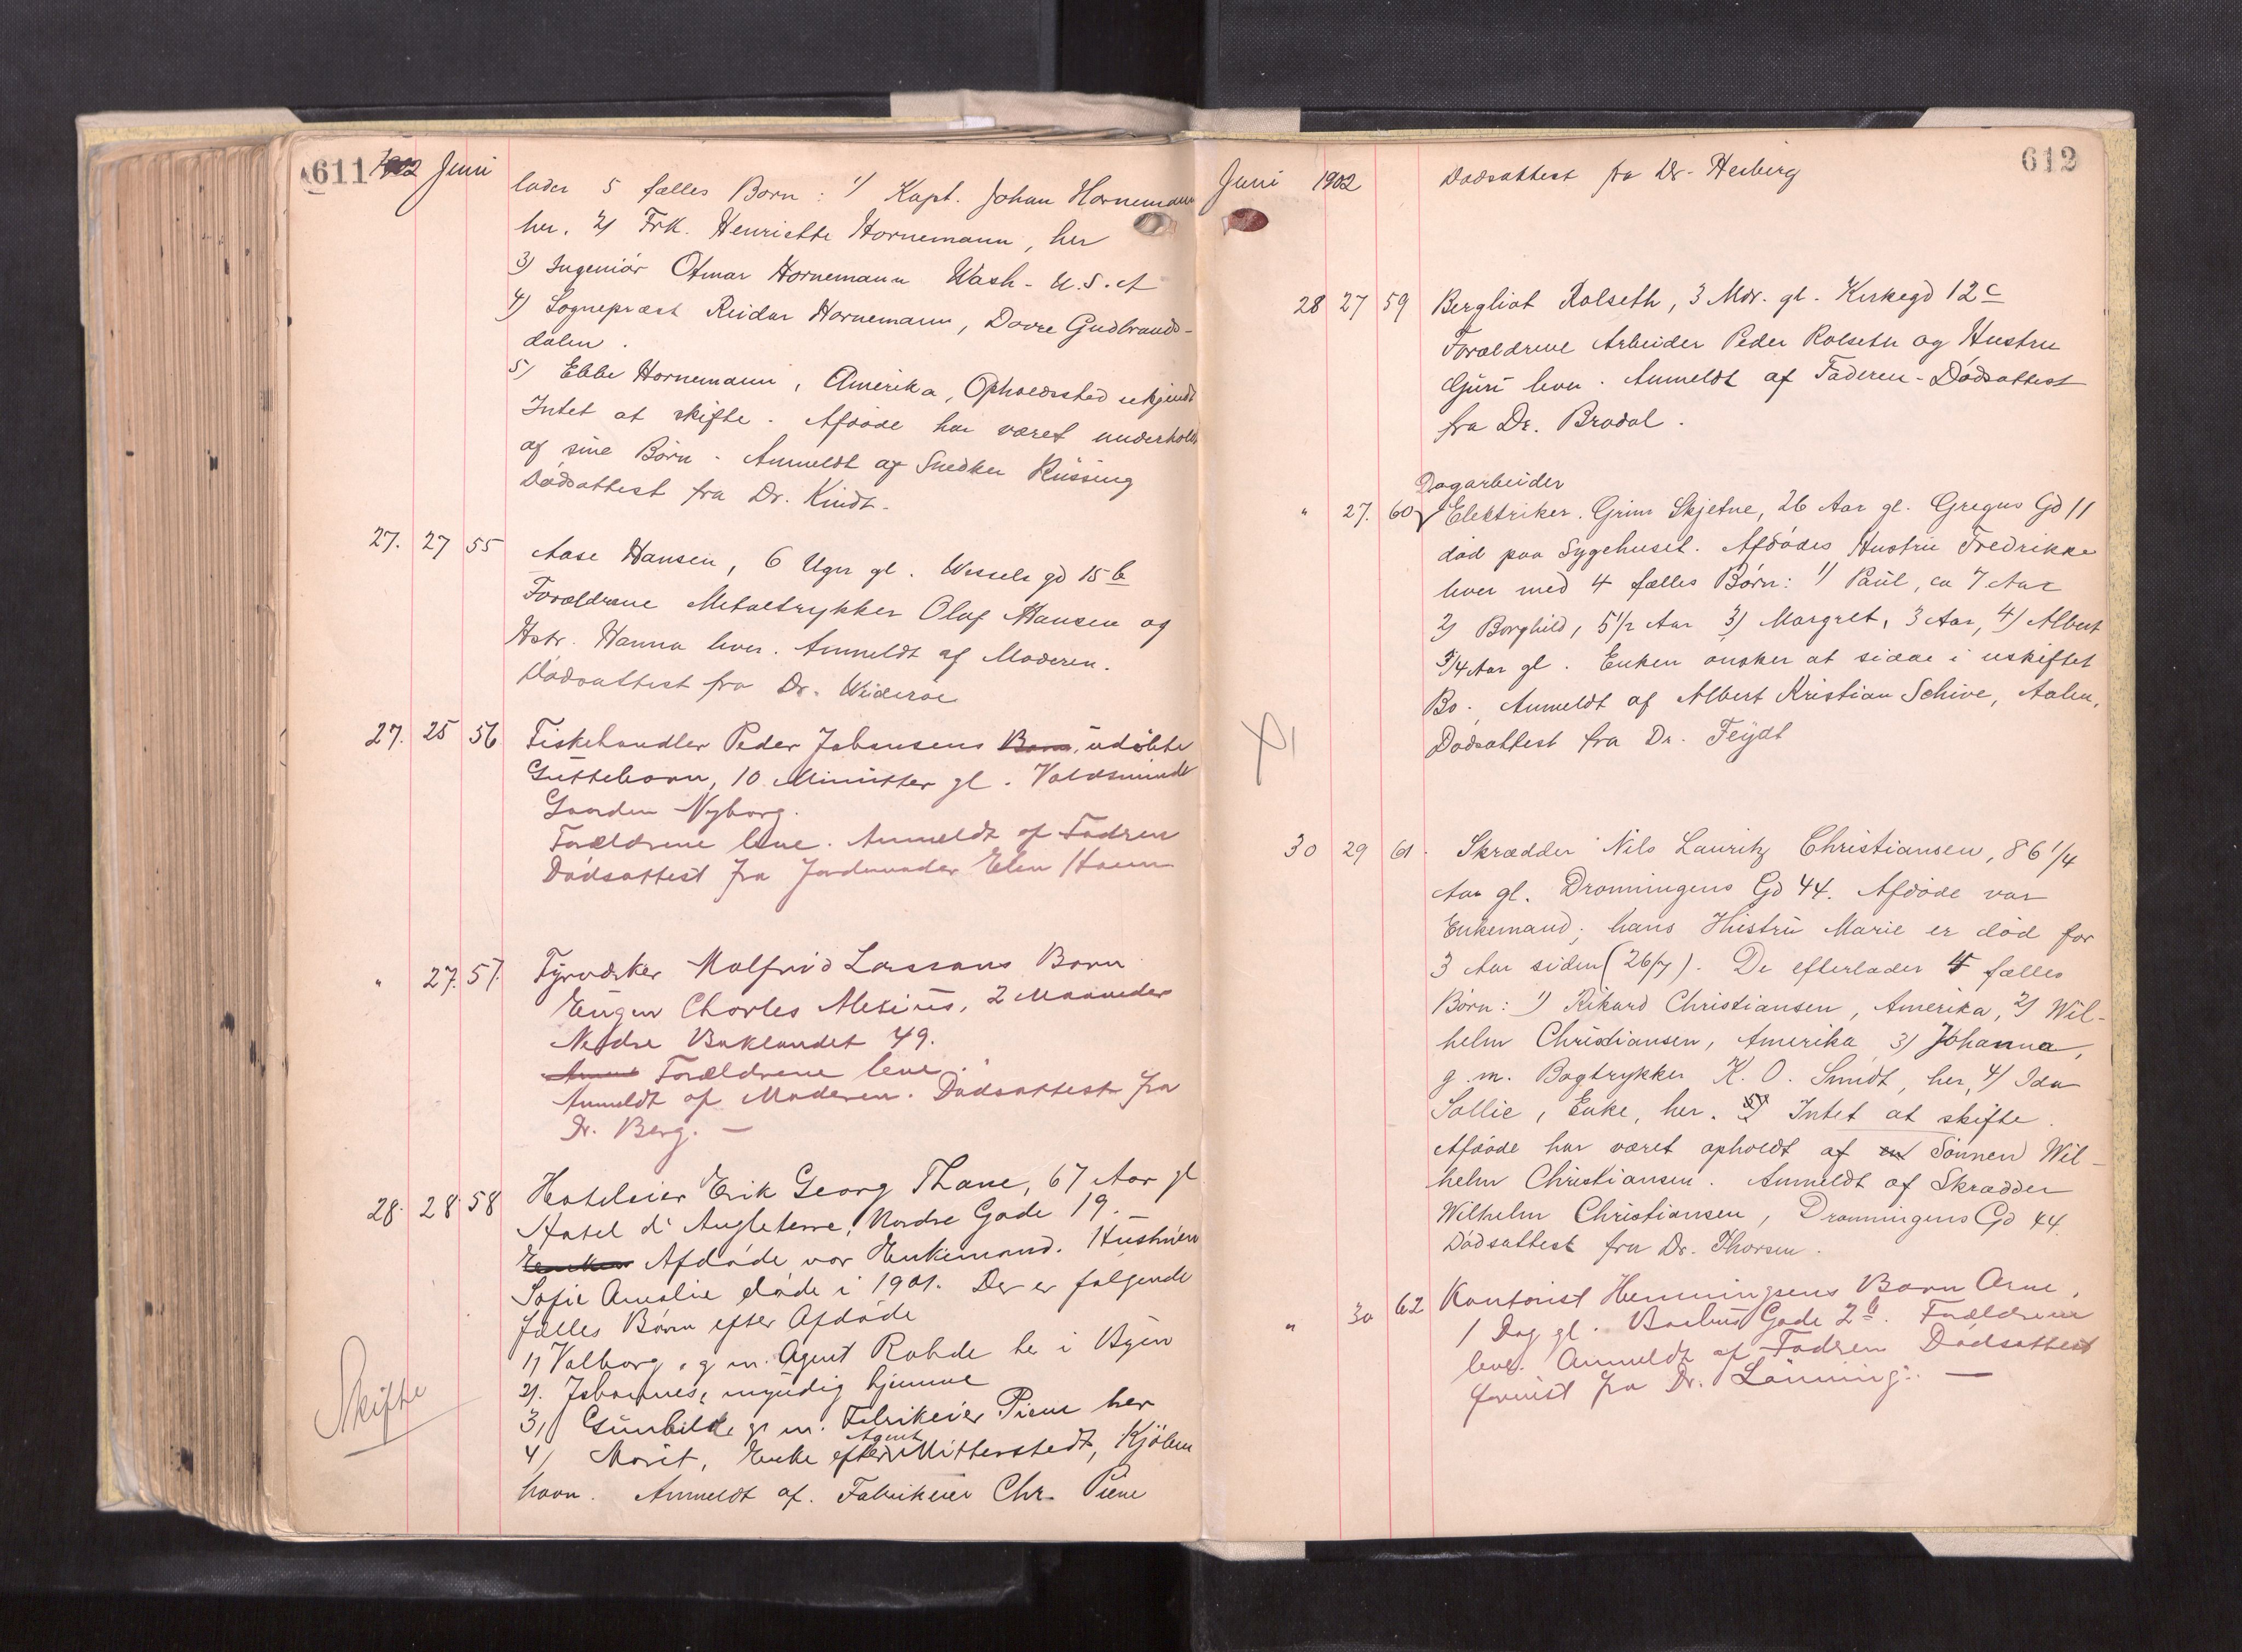 611 1902 Juni
lader 5 fælles Børn: 1/ Kapt. Johan Hornemann
her. 2) Frk. Henriette Hornemann, her
3) Ingeniør Otmar Hornemann Wash. U.S.A
4) Sognepræst Reidar Hornemann, Dovre Gudbrands-
dalen.
5) Ebbe Hornemann, Amerika, Opholdssted ukjendt
Intet at skifte. Afdøde har været underholdt
af sine Børn. Anmeldt af Snedker Rüssing
Dødsattest fra Dr. Kindt.
27. 27 55 Aase Hansen, 6 Uger gl. Wessels gd 15 b
Forældrene Metaltrykker Olaf Hansen og
Hstr. Hanna lever. Anmeldt af Moderen.
Dødsattest fra Dr. Widerøe
27. 25 56 Fiskehandler Peder Johansens Barn, udøbte
Guttebarn, 10 Minutter gl. Voldsminde
Gaarden Nyborg.
Forældrene leve. Anmeldt af Fadren
Dødsattest fra Jordemoder Elen Hoem
" 27. 57. Fyrvdsker Malfrid Larssons Barn
Eugen Charles Alexius, 2 Maaneder
Nedre Baklandet 49.
Forældrene leve.
Anmeldt af Moderen. Dødsattest fra
Dr. Berg. —
28. 28 58 Hoteleier Erik Georg Thane, 67 Aar gl
Hotel d'Angleterre, Nordre Gade 19.
Enken Afdøde var Enkemand. Hustruen
Sofie Amalie døde i 1901. Der er følgende
fælles Børn efter Afdøde
1) Valborg, g. m. Agent Rohde her i Byen
2). Johannes, myndig hjemme
3) Gunhild, g. m. Fabrikeier Piene her
4) Marit, Enke efter Agent Mitterstedt, Kjøben
havn. Anmeldt af. Fabrikeier Chr. Piene
Skifte
Juni 1902 612
Dødsattest fra Dr. Hesberg
28 27 59 Bergliot Rolseth, 3 Mdr. gl. Kirkegd 12 c
Forældrene Arbeider Peder Rolseth og Hustru
Guri lever. Anmeldt af Faderen - Dødsattest
fra Dr. Brodal.
Dagarbeider
" 27. 60 Elektriker. Grim Skjetne, 26 Aar gl. Gregus Gd 11
død paa Sygehuset. Afdødes Hustru Fredrikke
lever med 4 fælles Børn: 1) Paul, ca 7 Aar
2) Borghild, 5 1/2 Aar 3) Margret, 3 Aar, 4) Albert
3/4 Aar gl. Enken ønsker at sidde i uskiftet
Bo. Anmeldt af Albert Kristian Schive, Aalen,
Dødsattest fra Dr. Feydt
30 29 61. Skrædder Nils Lauritz Christiansen, 86 1/4
Aar gl. Dronningens Gd 44. Afdøde var
Enkemand; hans Hustru Marie er død for
3 Aar siden (26/7). De efterlader 4 fælles
Børn: 1) Rikard Christiansen, Amerika, 2) Wil-
helm Christiansen, Amerika 3) Johanna,
g. m. Bogtrykker K. O. Smidt, her, 4) Ida
Sollie, Enke, her. 5) Intet at skifte.
Afdøde har været opholdt af en Sønnen Wil-
helm Christiansen. Anmeldt af Skrædder
Wilhelm Christiansen, Dronningens Gd 44.
Dødsattest fra Dr. Thorsen.
" 30 62 Kontorist Henningsens Barn Arne,
1 Dag gl. Bakus Gade 2 b. Forældrene
leve. Anmeldt af Fadren Dødsattest
forevist fra Dr. Lønning. —